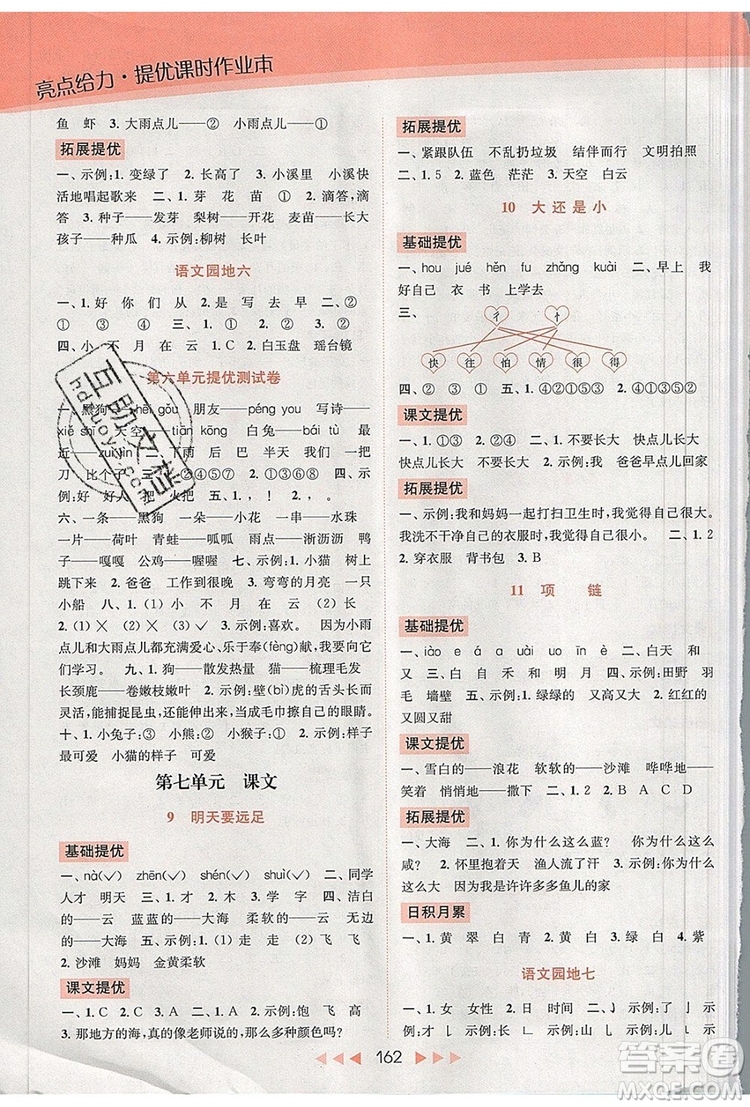 亮点给力·提优课时作业本
鱼 虾 3. 大雨点儿——② 小雨点儿——①
拓展提优
一、示例:1. 变绿了 2. 长高了 3. 小溪里 小溪快
活地唱起歌来 二、1. 芽 花 苗 2. 滴答,滴
答 3. 种子——发芽 梨树——开花 麦苗——长大
孩子——种瓜 4. 示例:柳树 长叶
语文园地六
一、1. 好 你 们 从 2. 是 写 去 早 二、②
① ③ ④ ⑥ ⑤ 三、1. ② 2. ① 3. ② 4. ②
四、小 不 月 在 白 云 白玉盘 瑶台镜
第六单元提优测试卷
一、黑狗——hēi gǒu 朋友——péng you 写诗——
xiě shī 天空——tiān kōng 白兔——bái tù 最
近——zuì jìn 下雨 后 巴 半天 我们 把
刀 比尾巴 四、②④①③⑥⑤ 五、1. 示
例:好 好人 把 火把 2. , ! 。 。
六、一条——黑狗 一朵——金花 一串——水珠
一片——荷叶 青蛙——呱呱 雨——淅沥沥 鸭
子——嘎嘎 公鸡——喔喔 七、示例:1. 小猫 树上
跳下来了 2. 爸爸 工作到很晚 3. 弯弯的月亮 一只
小船 八、1. (1) 小 不 月 白 2. (1)✓
(2)✕ (3)✓ (4)✕ 3. 示例:喜欢。 因为小雨
点儿和大雨点儿都充满爱心,乐于奉(fèng)献,给大
地带来了生机。 九、1. 狗——散发热量 猫——梳理毛发
长颈鹿——卷嫩枝嫩叶 2. 示例:壁(bì)虎的舌头长而
灵活,能捕捉昆虫,还会当成毛巾擦自己的眼睛。
十、1. 小兔子:③ 小熊:② 小猴子:① 2. 示例:样子
最可爱 小猫的样子 可爱
第七单元 课文
9 明天要远足
基础提优
一、nà(✓) zhēn(✓) shén(✓) shuì(✓) 二、同学
人才 明天 三、1. 才 2. 木 3. 才 四、洁白
的——云 蓝蓝的——大海 柔软的——沙滩 无边
的——大海 五、示例:1. (1)走 走 (2)飞 飞
2. 沙滩 妈妈 金黄柔软
课文提优
一、1. C 2. C 3. A 二、1. A 2. 示例:飞 高
3. 那地方的海,真的像老师说的,那么多种颜色吗?
拓展提优
一、紧跟队伍 不乱扔垃圾 结伴而行 文明拍照
二、1. 5 2. 蓝色 茫茫 3. 天空 白云
10 大 还 是 小
基础提优
一、hou jué hěn fu zhǎng kuài 二、早上 我
好好自己 衣 书 上学了 去
三、
彳 忄
快 往 怕 情 很 得
四、② ③ ① ④ 五、1. ④②①③⑤ 2. ④⑤①③②
课文提优
一、1. ①③ 2. ②④ 二、1. 不要长大 快点儿长大
快点儿长大 不要长大 2. 示例:我 爸爸早点儿回家
拓展提优
一、示例:我和妈妈一起打扫卫生的时候,觉得自己很大。
我洗不干净自己的衣服时,觉得自己很小。 二、1. 2
2. 穿衣服 背书包 3. B
11 项 链
基础提优
一、iào é á a uài ài ài uò 二、白天 和
又 三、白 自 禾 和 又 四、示例:田野 羽
毛 墙壁 五、示例:1. 绿绿的 又高又大 2. 红红的
又圆又甜
课文提优
一、雪白的——浪花 软软的——沙滩 哗哗地——
笑着 悄悄地——撒下 二、1. B 2. ACD
拓展提优
一、大海 二、1. 你为什么这么蓝? 你为什么这么
咸? 2. 怀里抱着天空 渔人流了汗 3. 示例:你为什么
这么大 因为我是许许多多鱼儿的家
日积月累
一、1. 黄 翠 白 青 2. 黄 青 白 3. 绿 4. 紫
语文园地七
一、1. 女 女性 2. 日 时间 二、示例:了 亅
水 亅 小 亅 示例:七 乚 儿 乚 电 乚
162